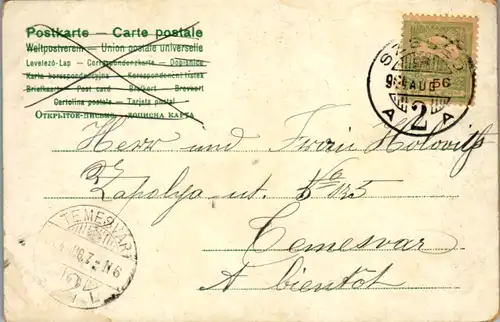 Postkarte — Carte postale
Weltpostverein — Union postale universelle
Levelező-Lap — Correspondenzkarte — Dopisnice
Karta korespondencyjna — Korespondenční lístek
Briefkarte — Post card — Brefkort — Brevkort
Cartolina postale — Tarjeta postal
Открытое-письмо, дописна карта
Herr und Frau Holovits
Zapolya-ut.
Temesvar
A bientôt
TEMESVÁR
2